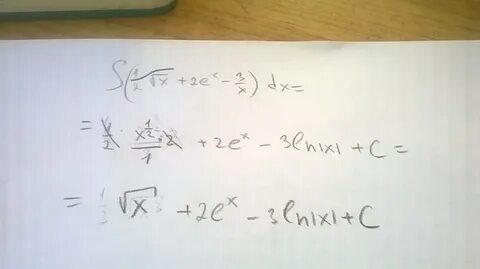 ∫(1/2 √x + 2e^x - 3/x) dx =
= 1/2 · x^(1/2) · 2/1 + 2e^x - 3ln|x| + C =
= √x + 2e^x - 3ln|x| + C